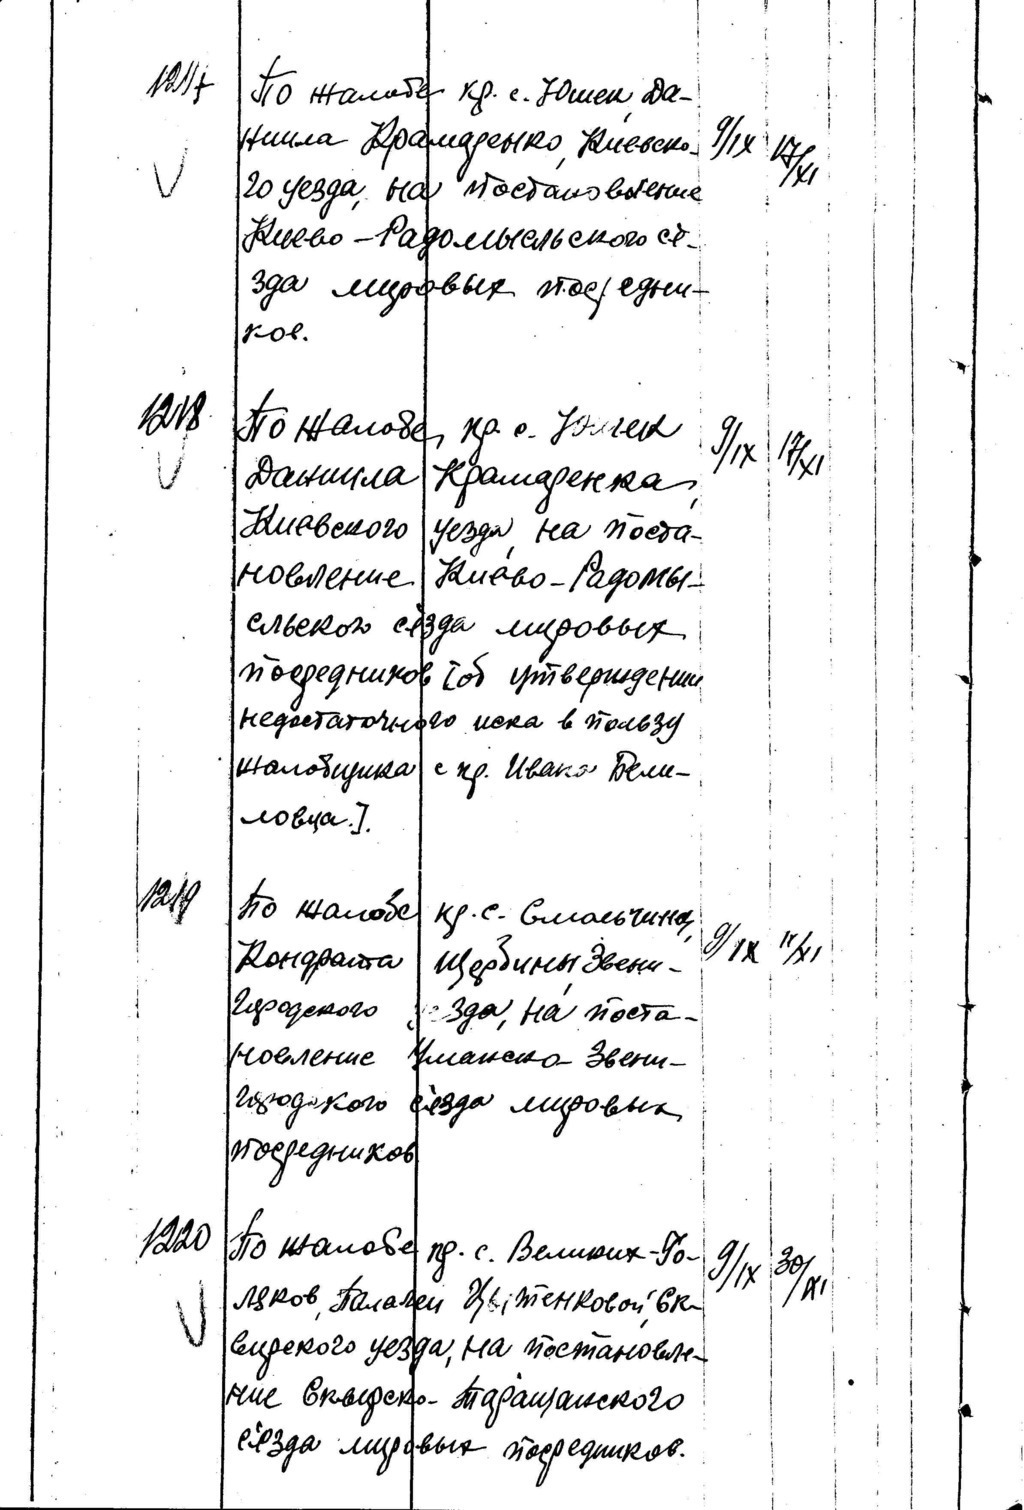 1217 По жалобе кр. с. Юшек, Да-
ниила Крамаренко, Киевско- 9/IX 17/XI
го уезда, на постановление
Киево-Радомысльского съ-
зда мировых посредни-
ков.
1218 По жалобе, кр. с. Юшек 9/IX 17/XI
Даниила Крамаренка,
Киевского уезда, на поста-
новление Киево-Радомы-
сльского съезда мировых
посредников [об утверждении
недостаточного иска в пользу
жалобщика с кр. Ивана Бели-
ловца.].
1219 По жалобе кр. с. Смольчина,
Кондрата Щербины, Звени- 9/IX 17/XI
городского уезда, на поста-
новление Уманско-Звени-
городского съезда мировых
посредников
1220 По жалобе кр. с. Великих-Го- 9/IX 30/XI
ляков, Палагеи Скв-
вирского уезда, на постановле-
ние Сквирско-Таращанского
съезда мировых посредников.